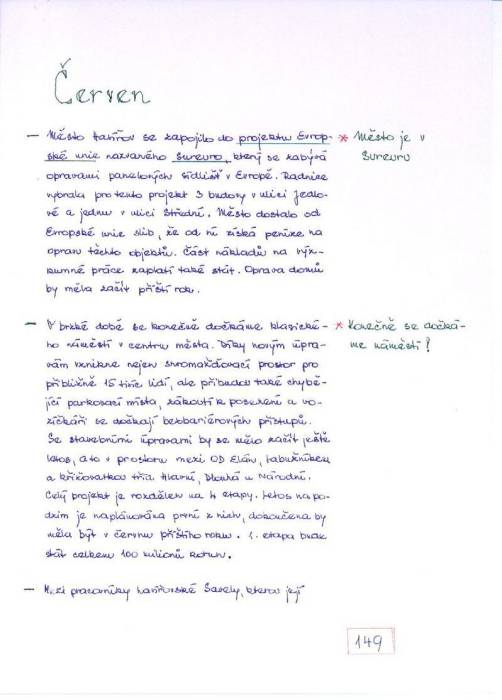 Červen
— Město Havířov se zapojilo do projektu Evrop-
ské unie nazvaného Sureuro, který se zabývá
opravami panelových sídlišť v Evropě. Radnice
vybrala pro tento projekt 3 budovy v ulici Jedlo-
vé a jednu v ulici Střední. Město dostalo od
Evropské unie slib, že od ní získá peníze na
opravu těchto objektů. Část nákladů na výz-
kumné práce zaplatí také stát. Oprava domů
by měla začít příští rok.
* Město je v
Sureuru
— V brzké době se konečně dočkáme klasické-
ho náměstí v centru města. Díky novým úpra-
vám vznikne nejen shromažďovací prostor pro
přibližně 15 tisíc lidí, ale přibudou také chybě-
jící parkovací místa, zákoutí k posezení a vo-
zíčkáři se dočkají bezbariérových přístupů.
Se stavebními úpravami by se mělo začít ještě
letos, a to v prostoru mezi OD Elán, Labužníkem
a křižovatkou tříd Hlavní, Dlouhá a Národní.
Celý projekt je rozdělen na 4 etapy. Letos na po-
dzim je naplánována první z nich, dokončena by
měla být v červnu příštího roku. 1. etapa bude
stát celkem 100 milionů korun.
* Konečně se dočká-
me náměstí!
— Mezi pracovníky havířovské Savely, kterou její
149